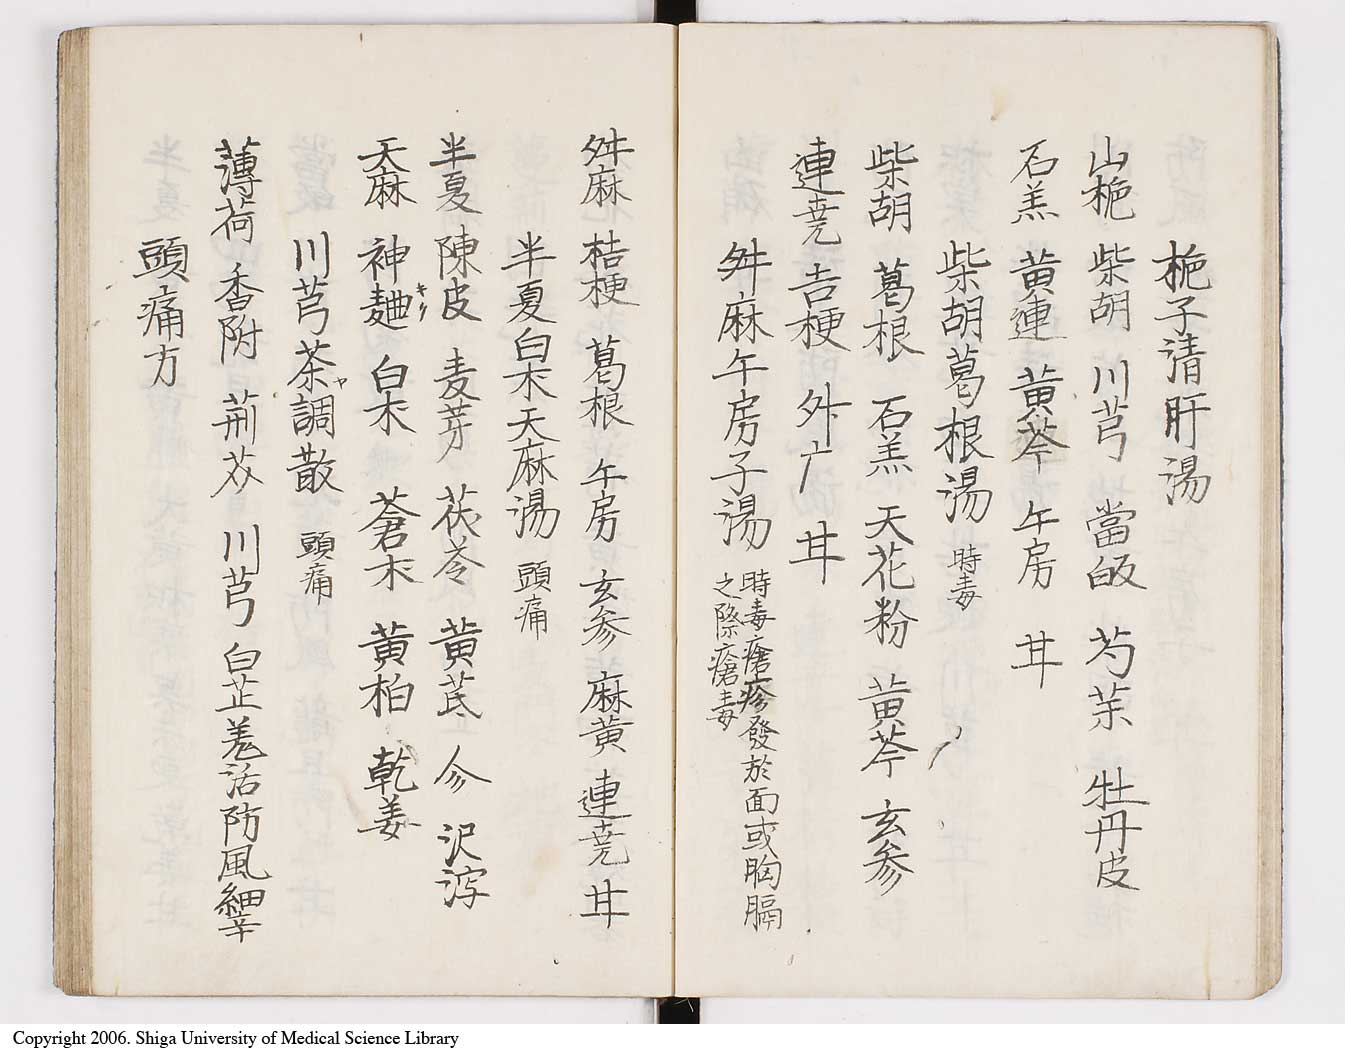 梔子清肝湯
山梔 柴胡 川芎 當皈 芍茱 牡丹皮
石羔 黄連 黄芩 午房 甘
柴胡葛根湯 時毒
柴胡 葛根 石羔 天花粉 黄芩 玄参
連尭 吉梗 舛广 甘
舛麻午房子湯 時毒瘡疹發於面或胸膈
之際瘡毒
舛麻 桔梗 葛根 午房 玄参 麻黄 連尭 甘
半夏白朮天麻湯 頭痛
半夏 陳皮 麦芽 茯苓 黄芪 㐱 沢瀉
天麻 神麯 キク 白朮 蒼朮 黄柏 乾姜
川芎茶調散 ヤ 頭痛
薄荷 香附 荊芥 川芎 白芷 羌活 防風 細辛
頭痛方
Copyright 2006. Shiga University of Medical Science Library